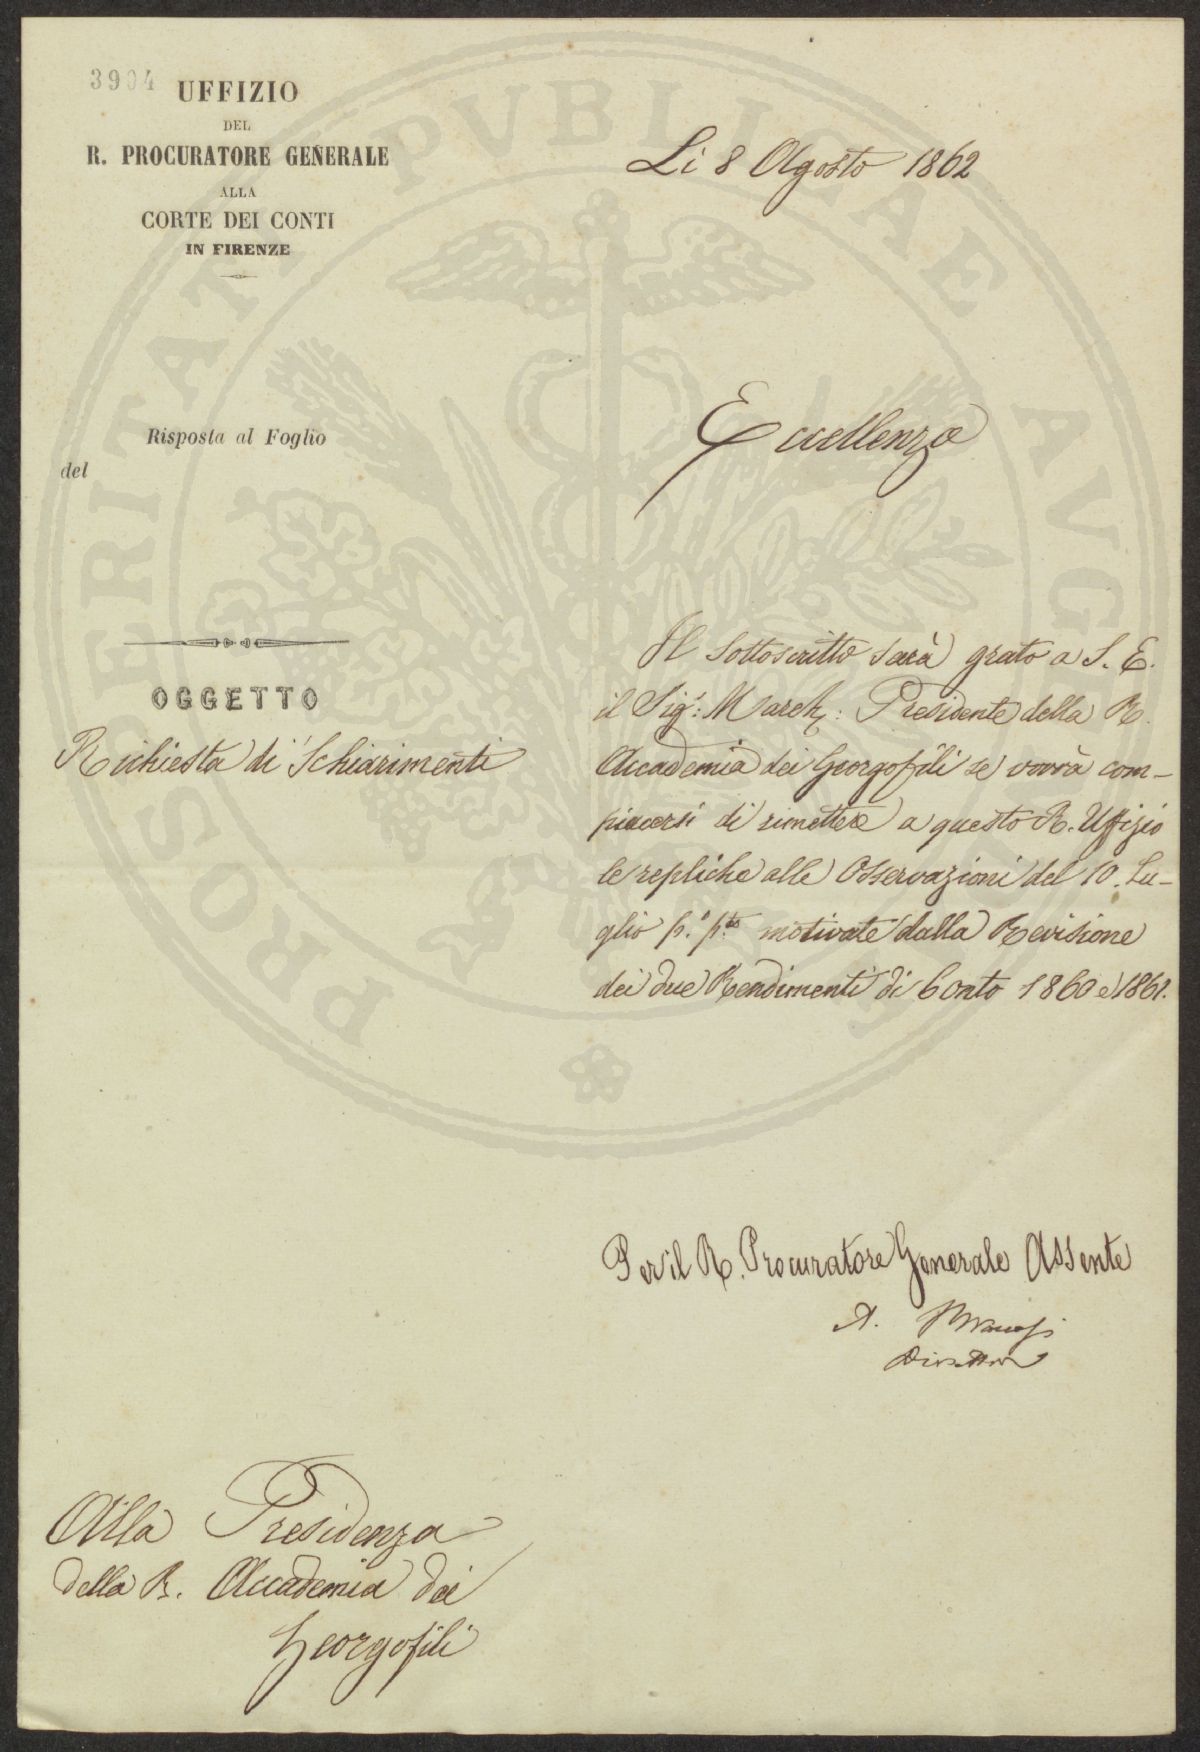 3904
UFFIZIO
DEL
R. PROCURATORE GENERALE
ALLA
CORTE DEI CONTI
IN FIRENZE
Li 8 Agosto 1862
Risposta al Foglio
del
Eccellenza
OGGETTO
Richiesta di Schiarimenti
Il sottoscritto sarà grato a S. E.
il Sigr: March: Presidente della R.
Accademia dei Georgofili se vorrà com-
piacersi di rimettere a questo R. Uffizio
le repliche alle Osservazioni del 10. Lu-
glio p.o p.to motivate dalla Revisione
dei due Rendimenti di Conto 1860 e 1861.
Per il R. Procuratore Generale Assente
A.
Direttore
Alla Presidenza
della R. Accademia dei
Georgofili
PROSPERITATI PVBLICAE AVGENDAE